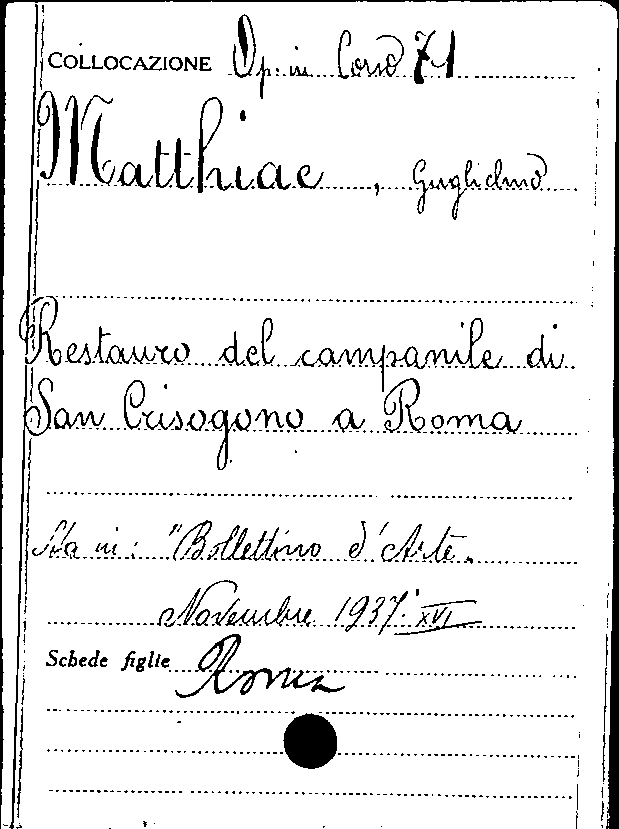 COLLOCAZIONE Op. in Corso 71
Matthiae, Guglielmo
Restauro del campanile di
San Crisogono a Roma
Sta in: "Bollettino d'Arte„
Novembre 1937. XVI
Schede figlie Roma